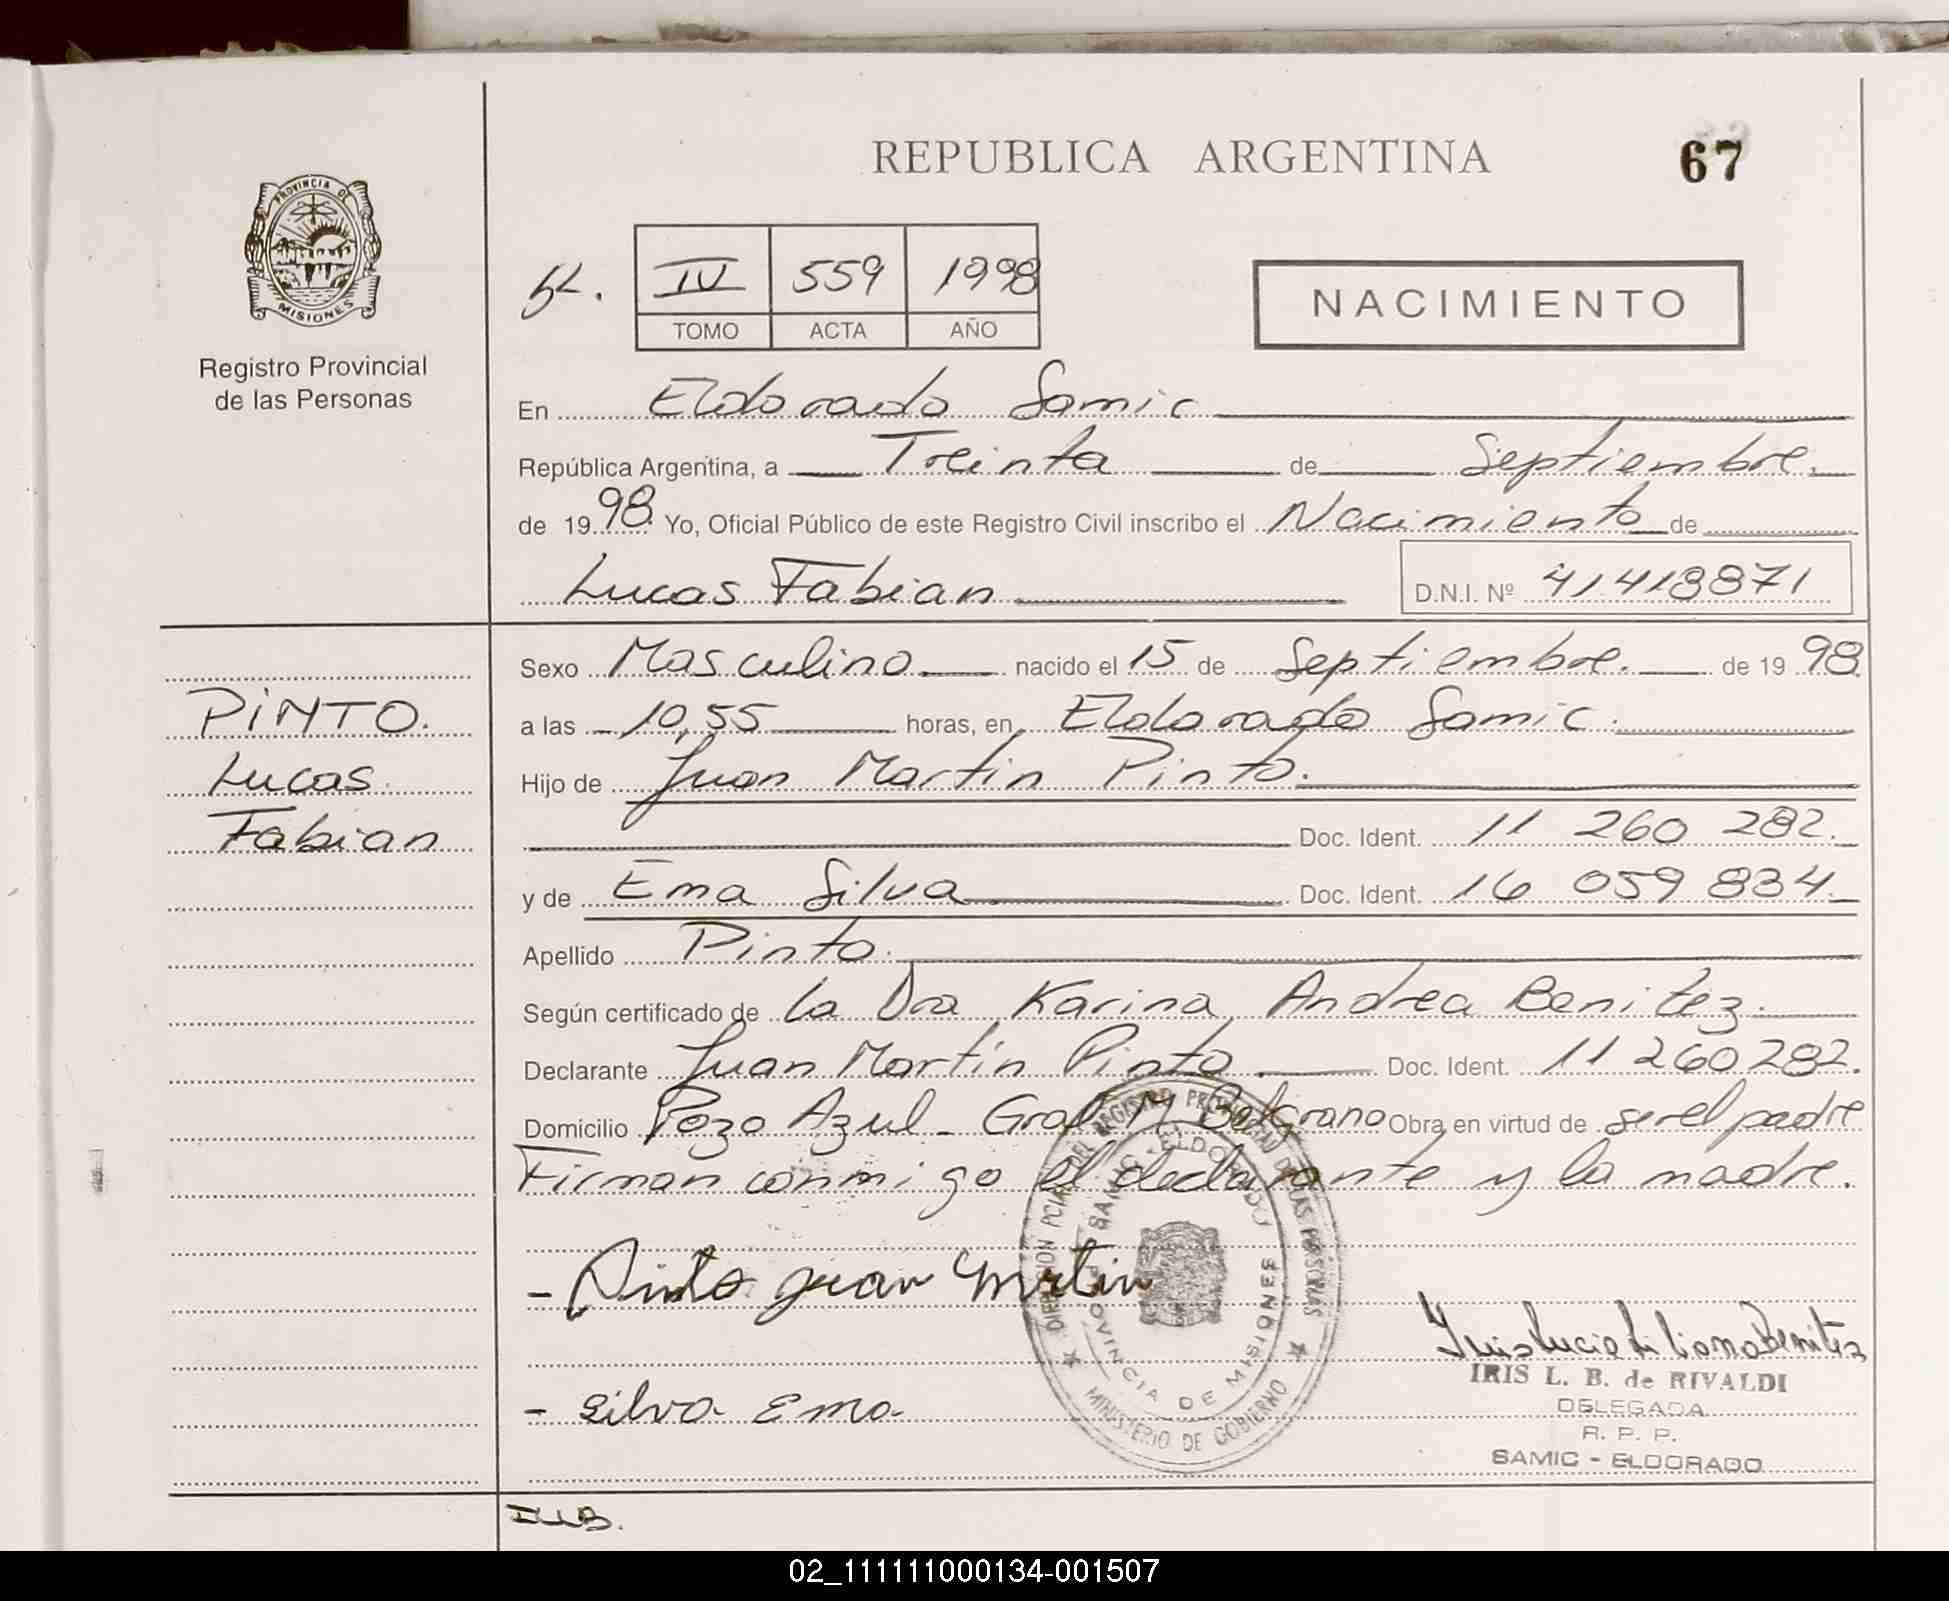 REPUBLICA ARGENTINA
67
PROVINCIA DE
MISIONES
Registro Provincial
de las Personas
IV 559 1998
TOMO ACTA AÑO
NACIMIENTO
En Eldorado Samic
República Argentina, a Treinta de Septiembre.
de 1998. Yo, Oficial Público de este Registro Civil inscribo el Nacimiento de
Lucas Fabian D.N.I. Nº 41418871
PINTO.
Lucas
Fabian
Sexo Masculino nacido el 15 de Septiembre. de 1998
a las 10,55 horas, en Eldorado Samic.
Hijo de Juan Martin Pinto.
Doc. Ident. 11 260 282.
y de Ema Silva Doc. Ident. 16 059 834.
Apellido Pinto.
Según certificado de la Dra Karina Andrea Benitez.
Declarante Juan Martín Pinto Doc. Ident. 11 260 282.
Domicilio Pozo Azul - Gral M Belgrano Obra en virtud de ser el padre
Firman conmigo el declarante y la madre.
- Pinto Juan Martin
- Silva Ema.
DIRECCION PCIAL DEL REGISTRO PROVINCIAL DE LAS PERSONAS
SAMIC - ELDORADO
PROVINCIA DE MISIONES
MINISTERIO DE GOBIERNO
Iris Lucia Liliana Benitez
IRIS L. B. de RIVALDI
DELEGADA
R. P. P.
SAMIC - ELDORADO
02_111111000134-001507